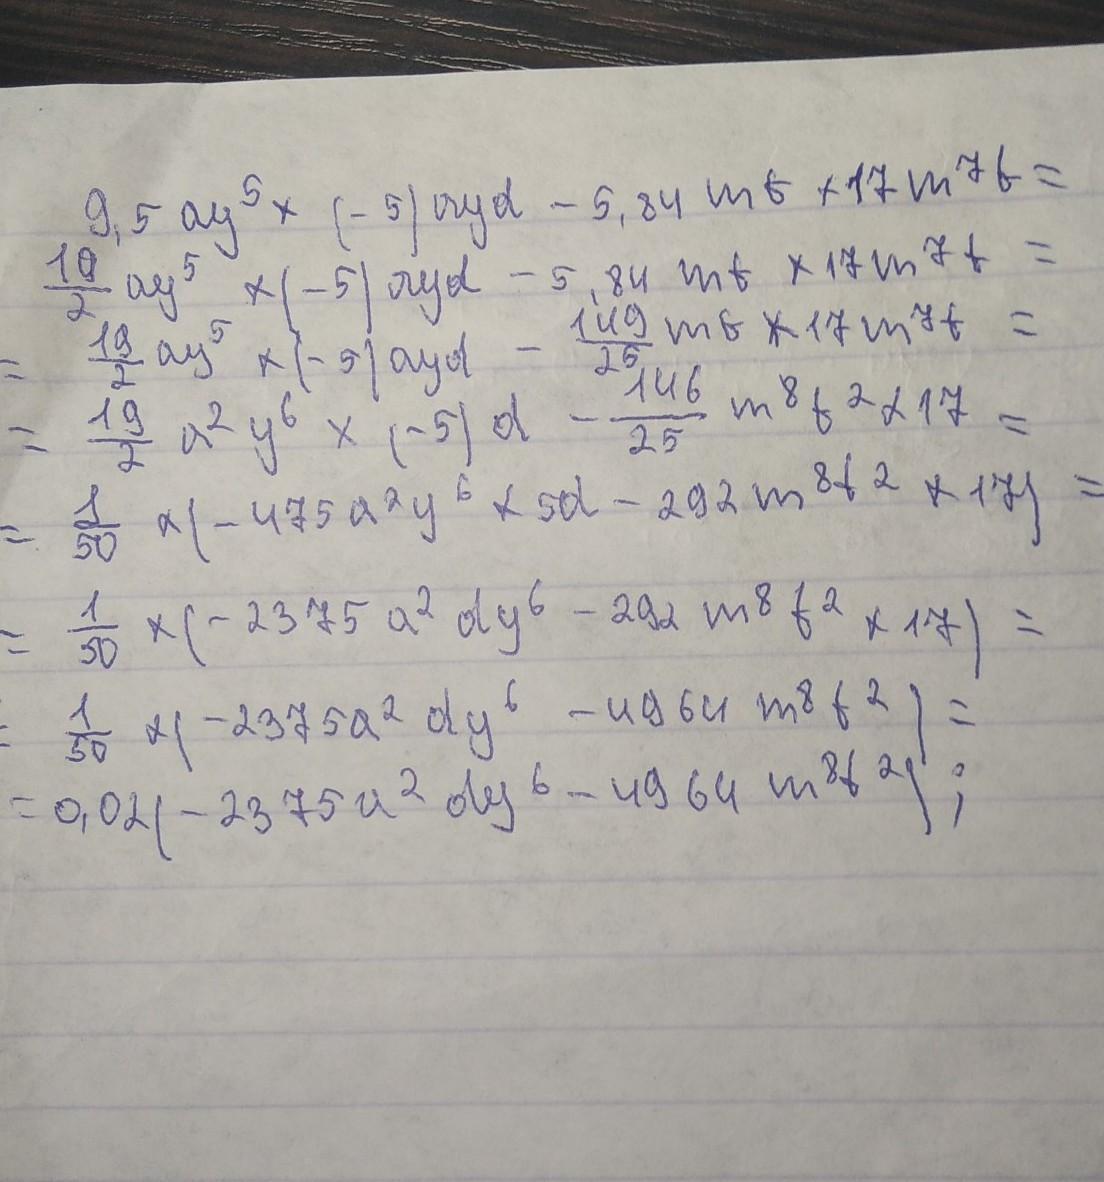 9,5 ay⁵ × (-5) ayd - 5,84 mt × 17 m⁷t =
19/2 ay⁵ × (-5) ayd - 5,84 mt × 17 m⁷t =
= 19/2 ay⁵ × (-5) ayd - 149/25 mt × 17 m⁷t =
= 19/2 a²y⁶ × (-5) d - 146/25 m⁸t² × 17 =
= 1/50 × (-475a²y⁶ × 5d - 292m⁸t² × 17) =
= 1/50 × (-2375a²dy⁶ - 292m⁸t² × 17) =
= 1/50 × (-2375a²dy⁶ - 4964m⁸t²) =
= 0,02(-2375a²dy⁶ - 4964m⁸t²);